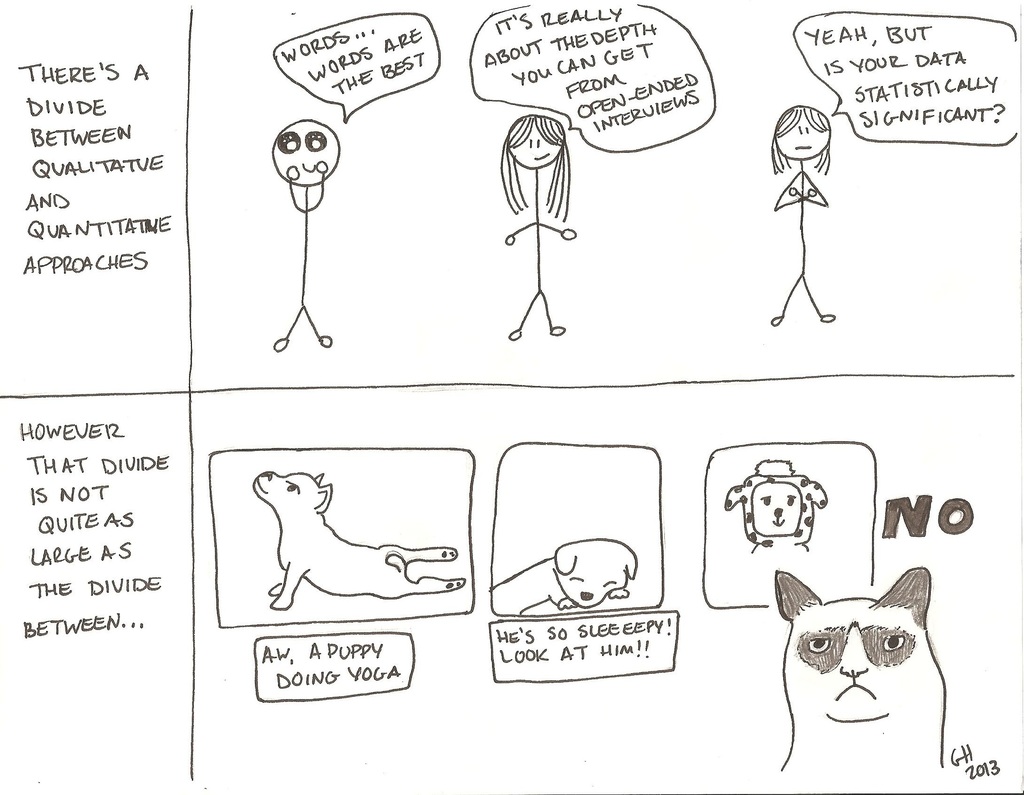 THERE'S A
DIVIDE
BETWEEN
QUALITATVE
AND
QUANTITATIVE
APPROACHES
WORDS...
WORDS ARE
THE BEST
IT'S REALLY
ABOUT THE DEPTH
YOU CAN GET
FROM
OPEN-ENDED
INTERVIEWS
YEAH, BUT
IS YOUR DATA
STATISTICALLY
SIGNIFICANT?
HOWEVER
THAT DIVIDE
IS NOT
QUITE AS
LARGE AS
THE DIVIDE
BETWEEN...
AW, A PUPPY
DOING YOGA
HE'S SO SLEEEEPY!
LOOK AT HIM!!
NO
GH
2013